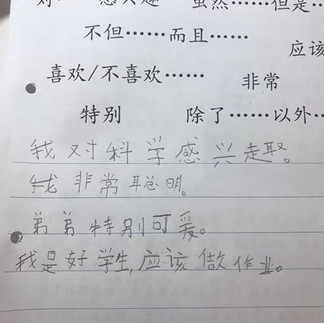 对……感兴趣 虽然……但是……
不但……而且…… 应该
喜欢/不喜欢…… 非常
特别 除了……以外……
我对科学感兴趣。
我非常聪明。
弟弟特别可爱。
我是好学生,应该做作业。